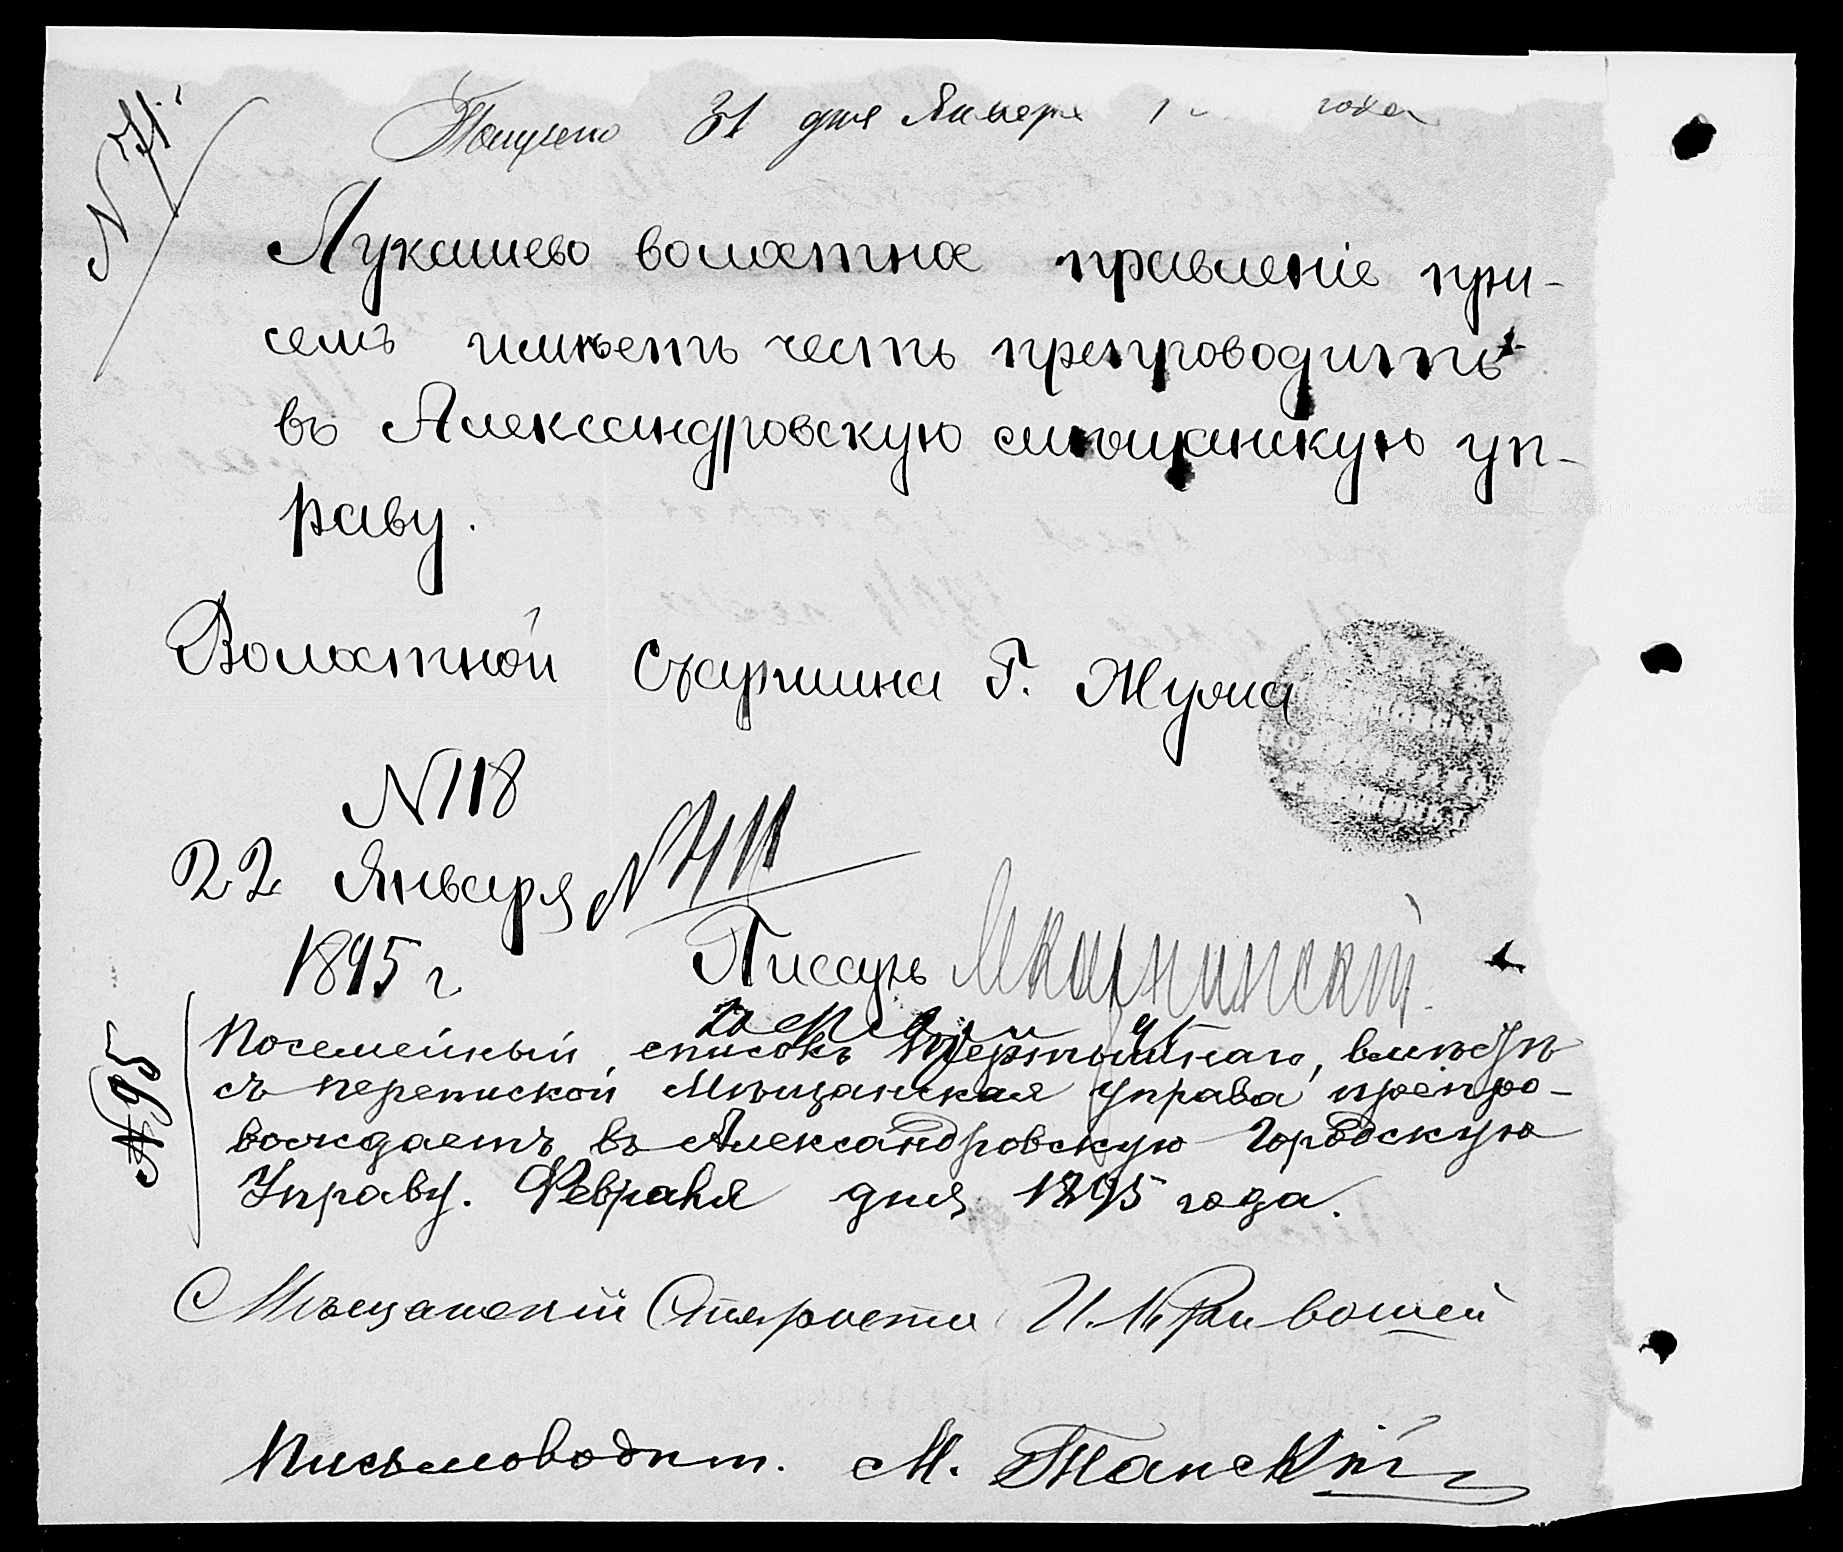 N 71.
Получено 31 дня Января года
Лукашево волостное правленіе при-
семъ имѣетъ честь препроводить
въ Александровскую мѣщанскую уп-
раву.
Волостной Старшина Г. Жула
N 118
22 Января N 411
1895 г
Писарь
N 95
Посемейный списокъ вмѣстѣ
съ перепиской Мѣщанская управа препро-
вождаетъ въ Александровскую Городскую
Управу. Февраля дня 1895 года.
Мѣщанскій Староста И. Кривошей
Письмоводит. М. Танскій